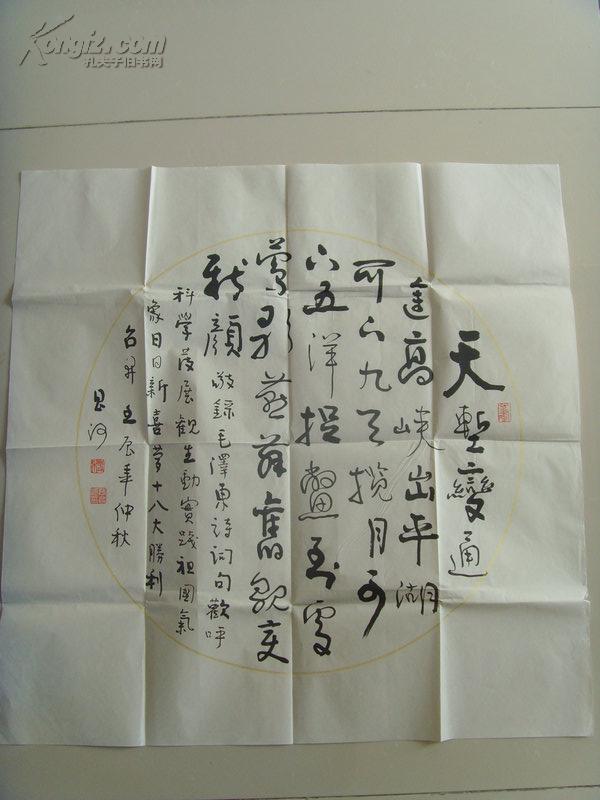 Kongfz.com
孔夫子旧书网
天塹變通
途高峽出平湖
可上九天攬月可
下五洋捉鱉到處
鶯歌燕舞舊貌變
新顏 敬錄毛澤東詩詞句歡呼
科學發展觀生動實踐祖國氣
象日日新喜 十八大勝利
召開 壬辰年仲秋